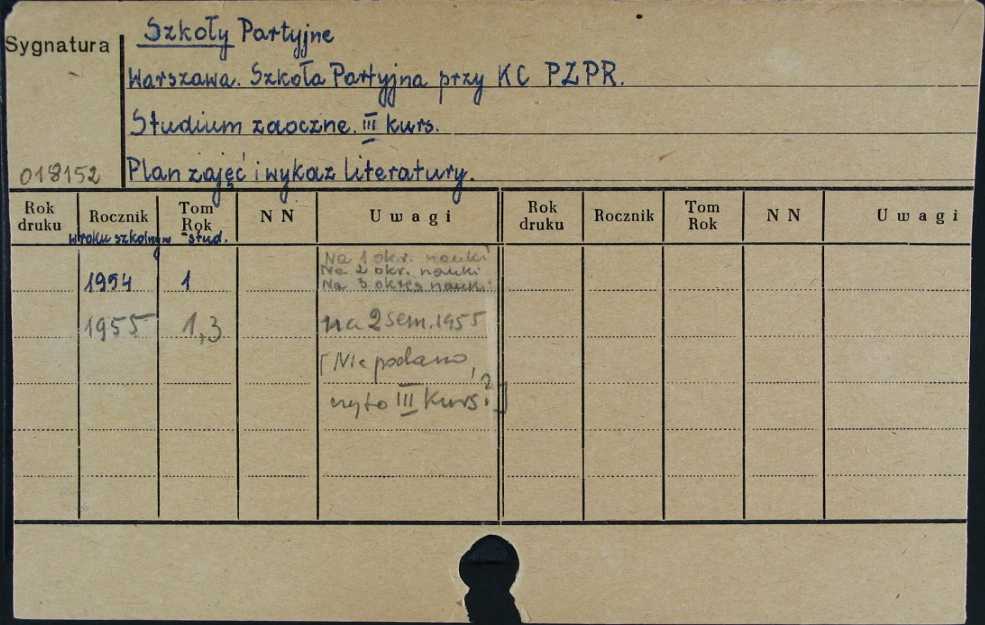 Szkoły Partyjne
Sygnatura
Warszawa. Szkoła Partyjna przy KC PZPR.
Studium zaoczne. III kurs.
018152 Plan zajęć i wykaz literatury.
Rok druku Rocznik Tom Rok NN Uwagi Rok druku Rocznik Tom Rok NN Uwagi
w roku szkolnym stud.
Na 1 okr. nauki
Na 2 okr. nauki
1954 1 Na 3 okres nauki
1955 1,3 na 2 sem. 1955
[Nie podano,
czy to III Kurs?]